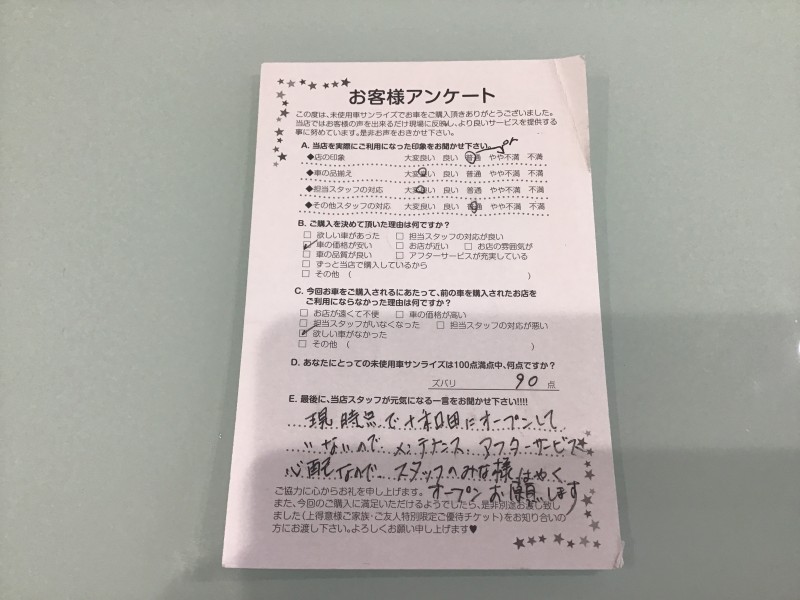 お客様アンケート
この度は、未使用車サンライズでお車をご購入頂きありがとうございました。
当店ではお客様の声を出来るだけ現場に反映し、より良いサービスを提供する
事に努めています。是非お声をおきかせ下さい。
A. 当店を実際にご利用になった印象をお聞かせ下さい。
◆店の印象 大変良い 良い 普通 やや不満 不満
◆車の品揃え 大変良い 良い 普通 やや不満 不満
◆担当スタッフの対応 大変良い 良い 普通 やや不満 不満
◆その他スタッフの対応 大変良い 良い 普通 やや不満 不満
B. ご購入を決めて頂いた理由は何ですか?
□ 欲しい車があった □ 担当スタッフの対応が良い
☑ 車の価格が安い □ お店が近い □ お店の雰囲気が
□ 車の品質が良い □ アフターサービスが充実している
□ ずっと当店で購入しているから
□ その他 ( )
C. 今回お車をご購入されるにあたって、前の車を購入されたお店を
ご利用にならなかった理由は何ですか?
□ お店が遠くて不便 □ 車の価格が高い
□ 担当スタッフがいなくなった □ 担当スタッフの対応が悪い
☑ 欲しい車がなかった
□ その他 ( )
D. あなたにとっての未使用車サンライズは100点満点中、何点ですか?
ズバリ 90 点
E. 最後に、当店スタッフが元気になる一言をお聞かせ下さい!!!!
現時点で 田にオープンして
いないので メンテナンス アフターサービス
心配なので スタッフのみな様 はやく
オープンお願いします
ご協力に心からお礼を申し上げます。
また、今回のご購入に満足いただけるようでしたら、是非別途お渡し致し
ました(上得意様ご家族・ご友人特別限定ご優待チケット)をお知り合いの
方にお渡し下さい。よろしくお願い申し上げます♥